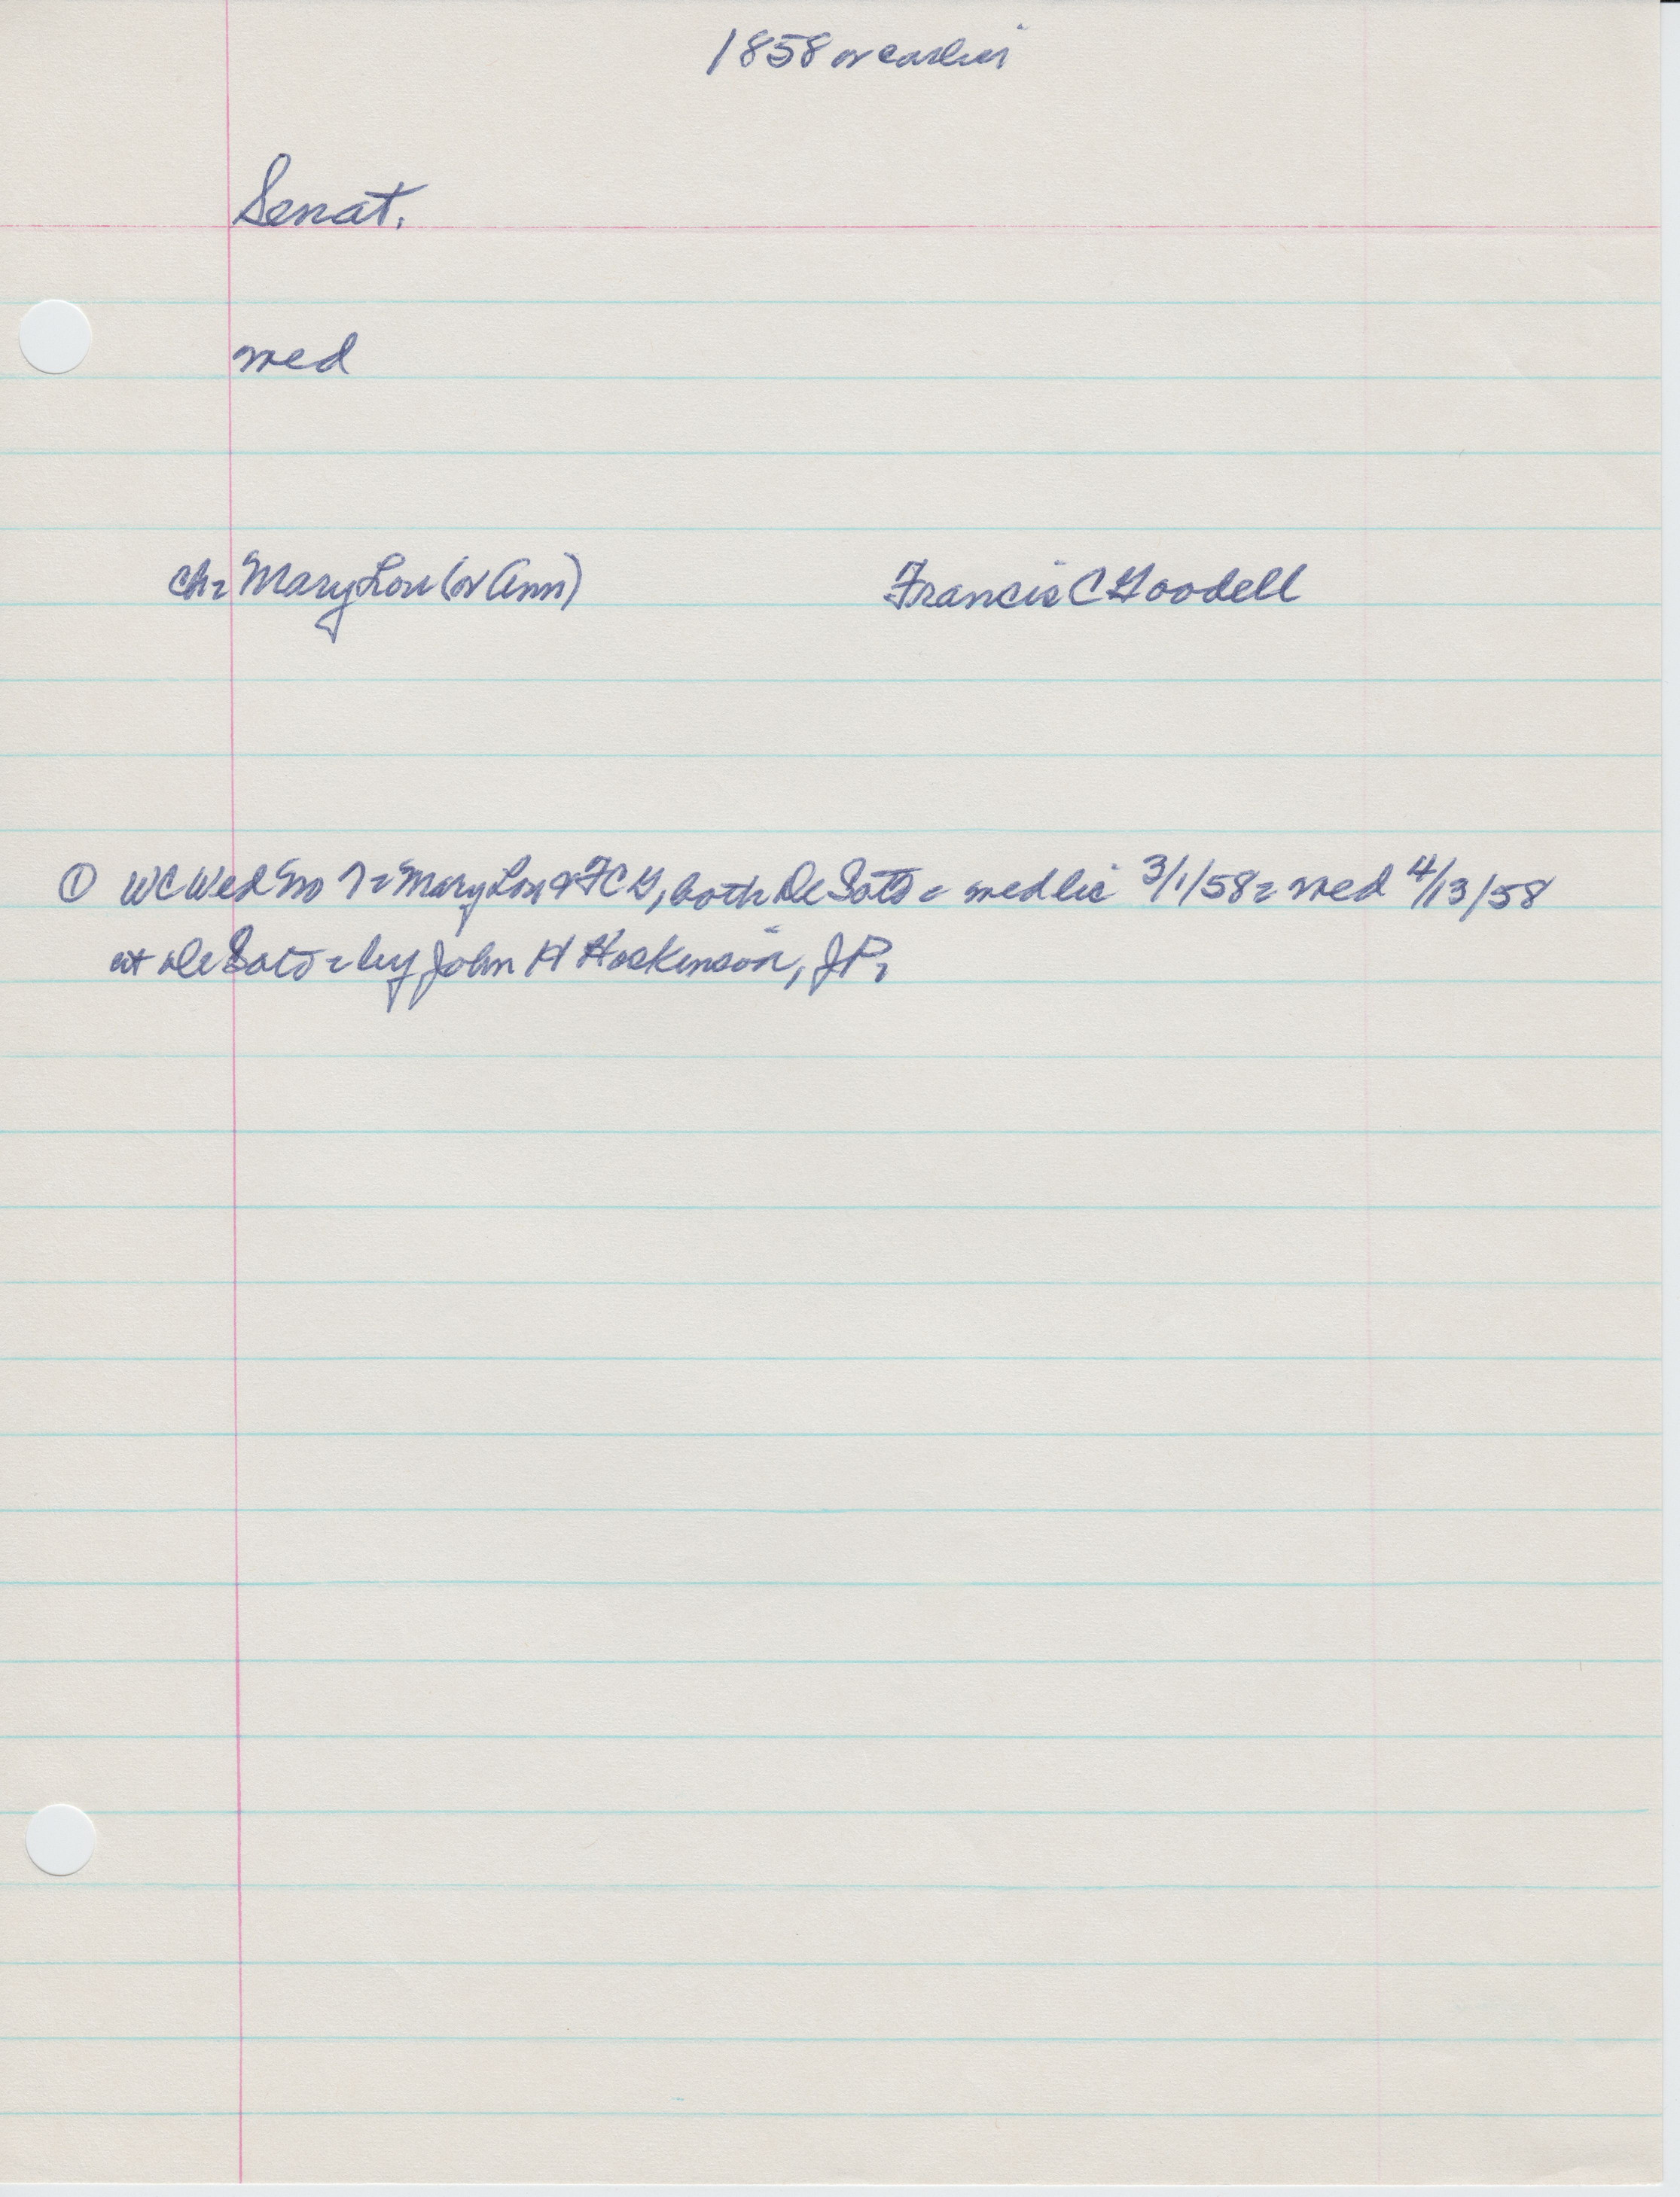 1858 or earlier
Senat.
med
Ch= Mary Lou (or Ann) Francis C Goodell
① WC Wed No 7= Mary Lou & FCG, both De Soto = med lic 3/1/58= med 4/13/58
at De Soto = by John H Hoskinson, JP.